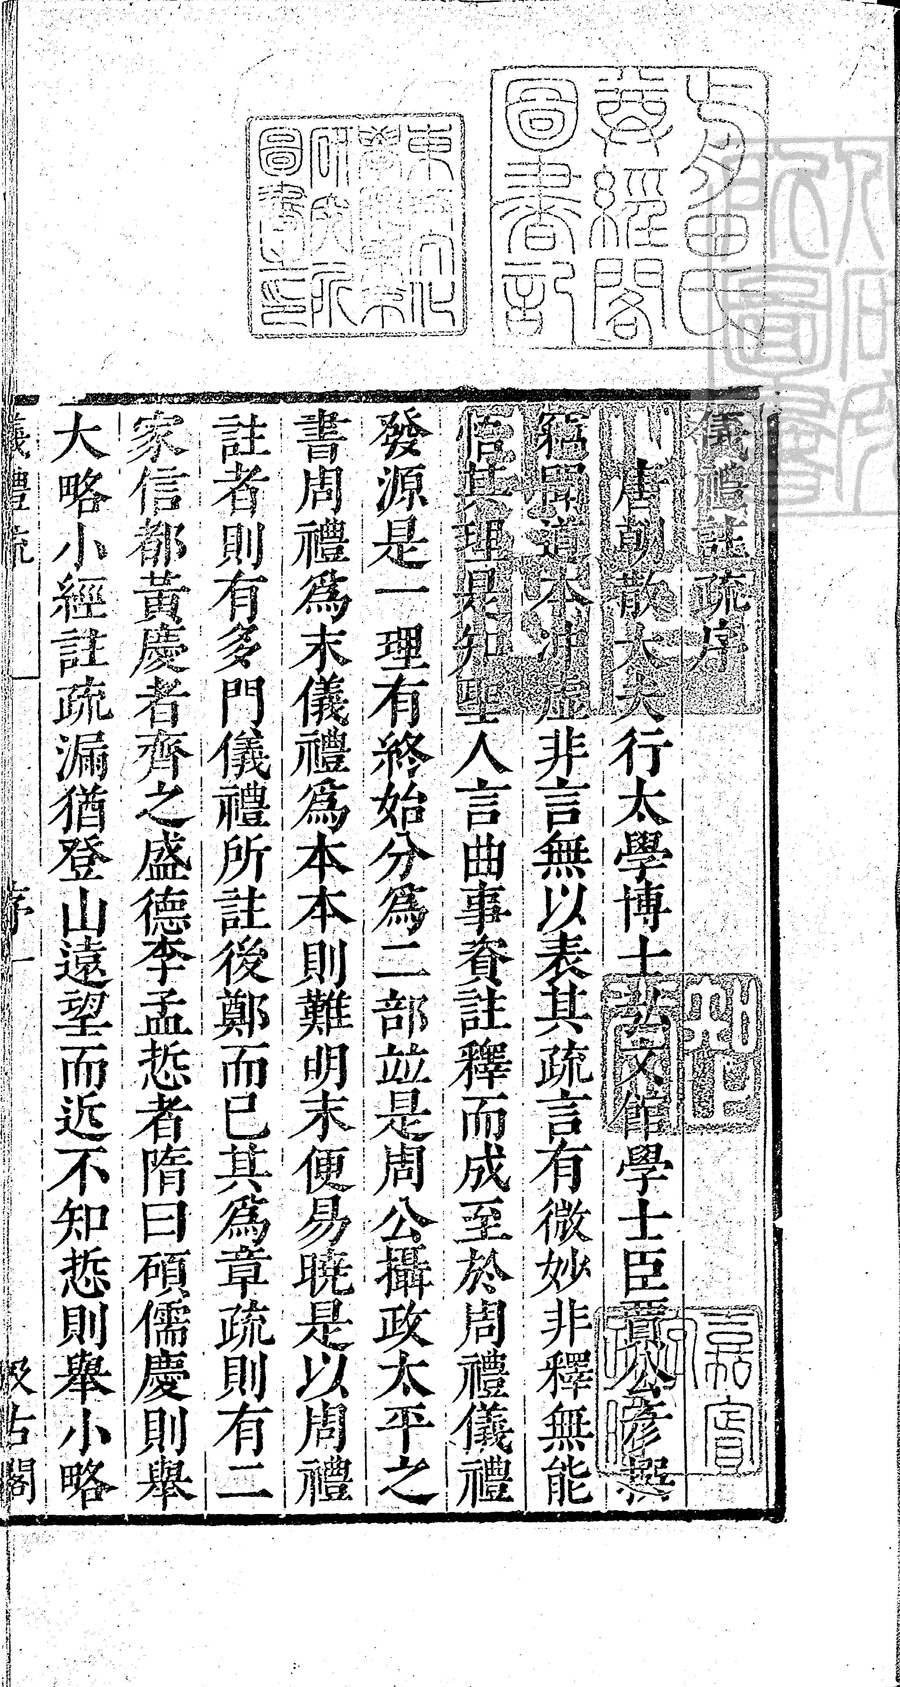 儀禮註疏序
唐朝散大夫行太學博士弘文館學士臣賈公彦撰
竊聞道本冲虛非言無以表其疏言有微妙非釋無能
悟其理是知聖人言曲事資註釋而成至於周禮儀禮
發源是一理有終始分爲二部竝是周公攝政太平之
書周禮爲末儀禮爲本本則難明末便易曉是以周禮
註者則有多門儀禮所註後鄭而已其爲章疏則有二
家信都黃慶者齊之盛德李孟悊者隋曰碩儒慶則舉
大略小經註疏漏猶登山遠望而近不知悊則舉小略
儀禮疏
序
一
汲古閣
上田氏
尊經閣
圖書記
東方文化
學院京都
研究所
圖書之印